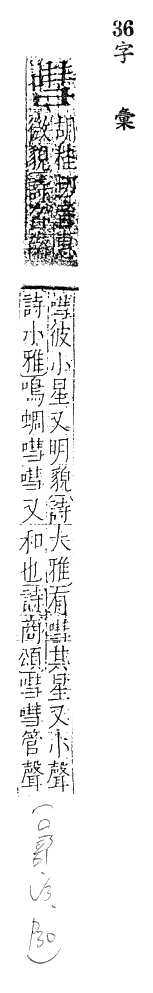 36字 彙
嘒
胡桂切音惠
微貌詩召南
嘒彼小星又明貌詩大雅有嘒其星又小聲
詩小雅鳴蜩嘒嘒又和也詩商頌嘒嘒管聲